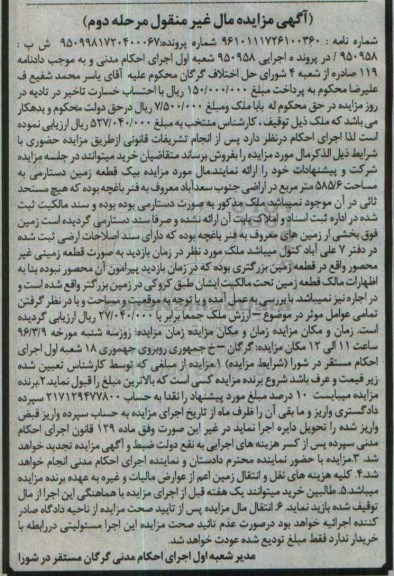 (آگهی مزایده مال غیر منقول مرحله دوم)
شماره نامه : ۹۶۱۰۱۱۱۷۲۶۱۰۰۳۶۰ شماره پرونده:۹۵۰۹۹۸۱۷۲۰۴۰۰۰۶۷ ش ب :
۹۵۰۹۵۸ / در پرونده اجرایی ۹۵۰۹۵۸ شعبه اول اجرای احکام مدنی و به موجب دادنامه
۱۱۹ صادره از شعبه ۴ شورای حل اختلاف گرگان محکوم علیه آقای یاسر محمد شفیع ف
علیرضا محکوم به پرداخت مبلغ ۱۵۰/۰۰۰/۰۰۰ ریال با احتساب خسارت تاخیر در تادیه در
روز مزایده در حق محکوم له بابا ملک ومبلغ ۷/۵۰۰/۰۰۰ ریال درحق دولت محکوم و بدهکار
می باشد که ملک ذیل توقیف ، کارشناس منتخب به مبلغ ۵۲۷/۰۴۰/۰۰۰ ریال ارزیابی نموده
است لذا اجرای احکام درنظر دارد پس از انجام تشریفات قانونی ازطریق مزایده حضوری با
شرایط ذیل الذکرمال مورد مزایده را بفروش برساند متقاضیان خرید میتوانند در جلسه مزایده
شرکت و پیشنهادات خود را ارائه نمایندمال مورد مزایده بیک قطعه زمین دستارمی به
مساحت ۵۸۵/۶ متر مربع در اراضی جنوب سعدآباد معروف به فنر باغچه بوده که هیچ مستحد
ثاتی در آن موجود نمیباشد ملک مذکور به صورت دستارمی بوده بوده و سند مالکیت ثبت
شده در اداره ثبت اسناد و املاک بابت آن ارائه نشده و صرفا سند دستارمی گردیده است زمین
فوق بخشی از زمین های معروف به فنر باغچه بوده که دارای سند اصلاحات ارضی ثبت شده
در دفتر ۷ علی آباد کتول میباشد ملک مورد نظر در زمان بازدید به صورت قطعه زمینی غیر
محصور واقع در قطعه زمین بزرگتری بوده که در زمان بازدید پیرامون آن محصور نبوده بنا به
اظهارات مالک قطعه زمین تحت مالکیت ایشان طبق کروکی در زمین بزرگتر واقع شده است و
در اجاره نیز نمیباشد. با بررسی به عمل آمده و با توجه به موقعیت و مساحت و با در نظر گرفتن
تمامی عوامل موثر در موضوع – ارزش ملک جمعا برابر با ۵۲۷/۰۴۰/۰۰۰ ریال ارزیابی گردیده
است. زمان و مکان مزایده زمان و مکان مزایده زمان مزایده: روزسه شنبه مورخه ۹۶/۳/۹
ساعت ۱۱ الی ۱۲ مکان مزایده: گرگان – خ جمهوری روبروی جمهوری ۱۸ شعبه اول اجرای
احکام مستقر در شورا (شرایط مزایده) ۱.مزایده از مبلغی که توسط کارشناس تعیین شده
زیر قیمت و عرف باشد شروع برنده مزایده کسی است که بالاترین مبلغ را قبول نماید.۲.برنده
مزایده میبایست ۱۰ درصد مبلغ مورد پیشنهاد را نقدا به حساب ۲۱۷۱۲۹۴۷۷۸۰۰ سپرده
دادگستری واریز و ما بقی آن را ظرف ماه از تاریخ اجرای مزایده به حساب سپرده واریز قبض
واریز شده را تحویل دایره اجرا نماید در غیر این صورت وفق ماده ۱۲۹ قانون اجرای احکام
مدنی سپرده پس از کسر هزینه های اجرایی به نفع دولت ضبط و آگهی مزایده تجدید خواهد
شد. ۳.مزایده با حضور نماینده محترم دادستان و نماینده اجرای احکام مدنی انجام خواهد
شد.۴. کلیه هزینه های نقل و انتقال زمین اعم از عوارض مالیات و غیره به عهده برنده مزایده
میباشد.۵. طالبین خرید میتوانند یک هفته قبل از اجرای مزایده با هماهنگی این اجرا از مال
توقیف شده بازید نماید. ۶. انتقال مال مزایده پس از تایید صحت مزایده از ناحیه دادگاه صادر
کننده اجرائیه خواهد بود درصورت عدم تائید صحت مزایده این اجرا مسئولیتی دررابطه با
خریدار ندارد فقط مبلغ تودیع شده عودت خواهد شد.
مدیر شعبه اول اجرای احکام مدنی گرگان مستقر در شورا